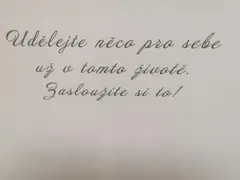 Udělejte něco pro sebe
už v tomto životě.
Zasloužíte si to!